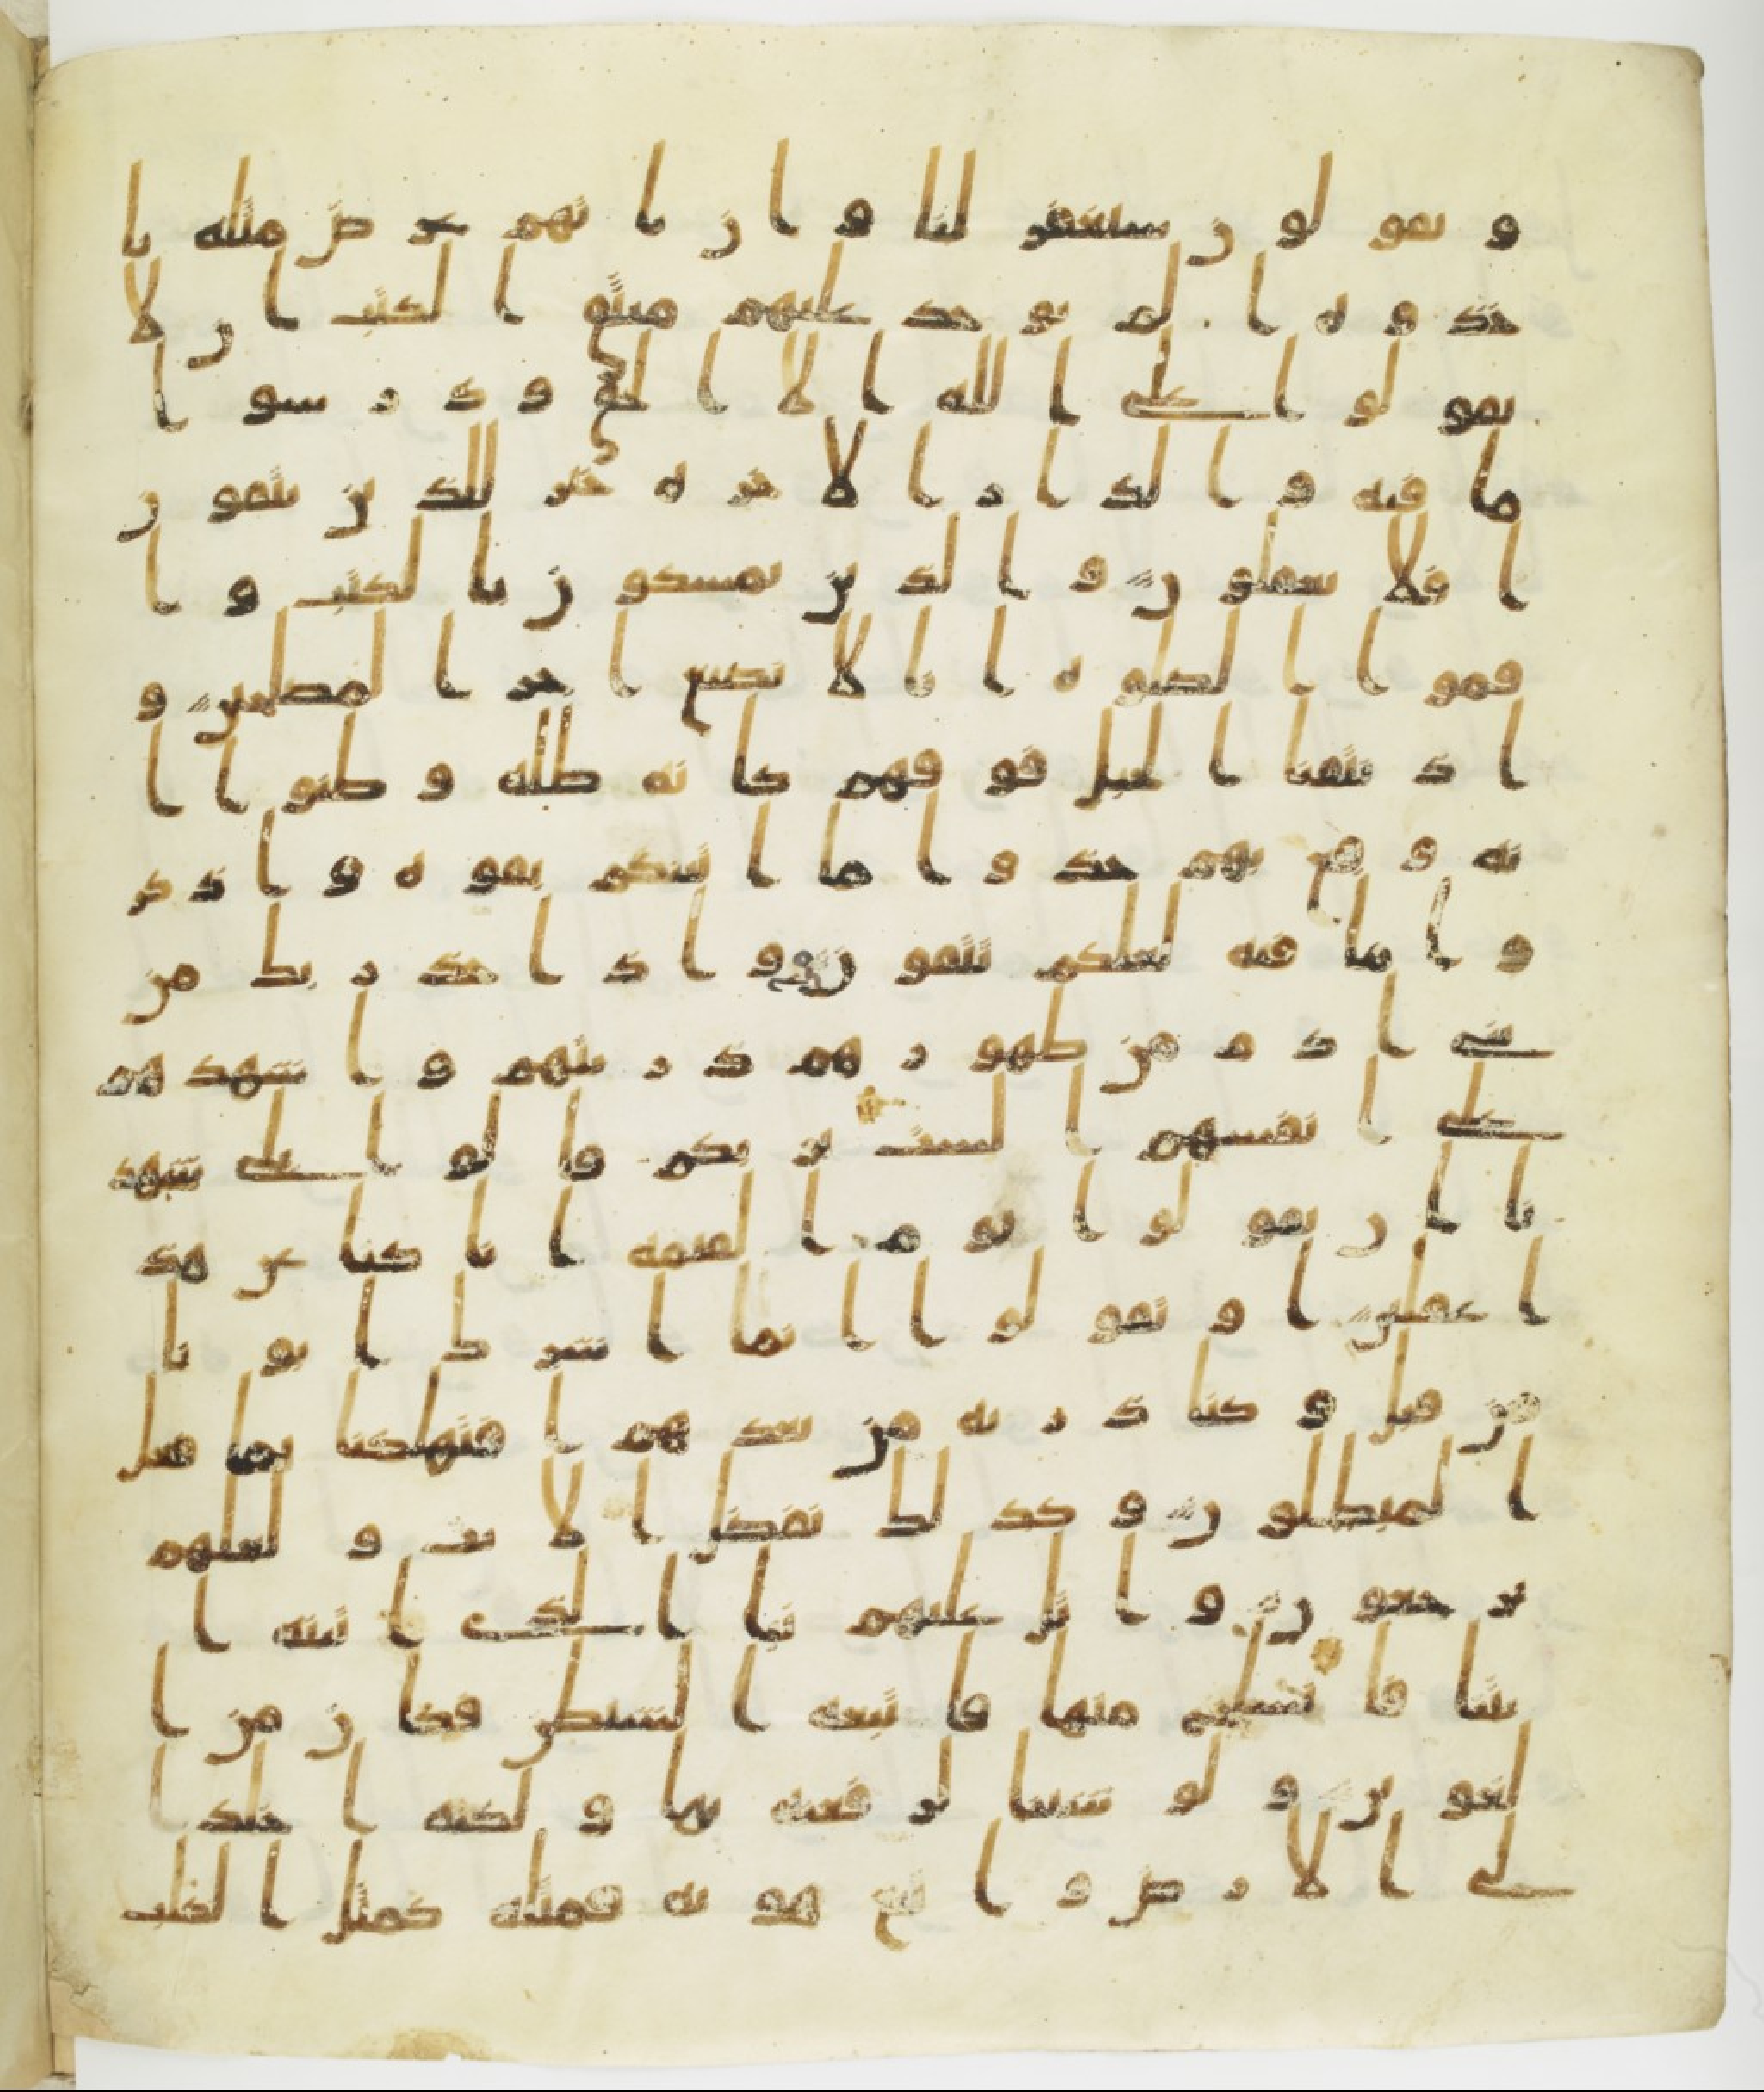 و يقولون سيغفر لنا وان ياتهم عرض مثله يا
خذوه الم يوخذ عليهم ميثق الكتب ان لا
يقولوا على الله الا الحق ودرسوا
ما فيه والدار الاخره خير للذين يتقون
افلا تعقلون والذين يمسكون بالكتب وا
قموا الصلوه انا لا نضيع اجر المصلحين و
اذ نتقنا الجبل فوقهم كانه ظله وظنوا ا
نه وقع بهم خذوا ما اتينكم بقوه واذكر
وا ما فيه لعلكم تتقون واذ اخذ ربك من
بني ادم من ظهورهم ذريتهم واشهدهم
على انفسهم الست بربكم قالوا بلى شهد
نا ان يقولوا يوم القيمه انا كنا عن هذ
ا غفلين او تقولوا انما اشرك ابونا
من قبل وكنا ذريه من بعدهم افتهلكنا بما فعل
المبطلون وكذلك نفصل الايت ولعلهم
يرجعون واتل عليهم نبا الذي اتينه ا
يتنا فانسلخ منها فاتبعه الشيطن فكان من ا
لغوين ولو شينا لرفعنه بها ولكنه اخلد ا
لى الارض واتبع هويه فمثله كمثل الكلب